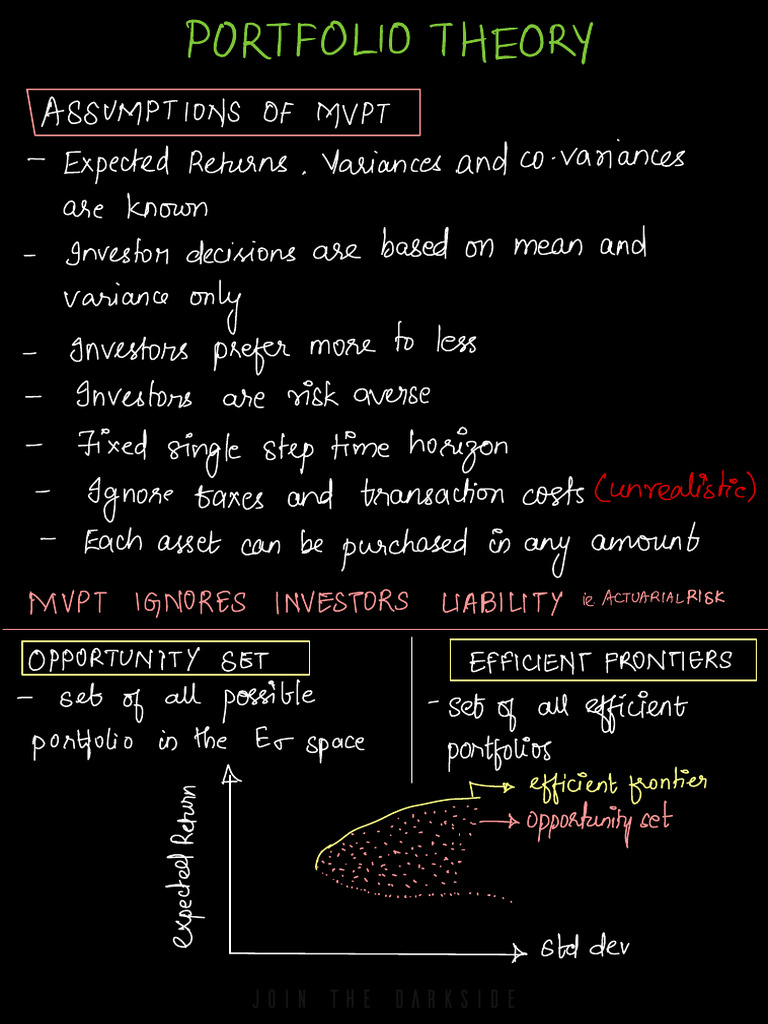 PORTFOLIO THEORY
ASSUMPTIONS OF MVPT
- Expected Returns, Variances and co-variances
are known
- Investor decisions are based on mean and
variance only
- Investors prefer more to less
- Investors are risk averse
- Fixed single step time horizon
- Ignore taxes and transaction costs (unrealistic)
- Each asset can be purchased in any amount
MVPT IGNORES INVESTORS LIABILITY ie ACTUARIAL RISK
OPPORTUNITY SET
- set of all possible
portfolio in the Eσ space
EFFICIENT FRONTIERS
- set of all efficient
portfolios
efficient frontier
opportunity set
Expected Return
std dev
JOIN THE DARKSIDE